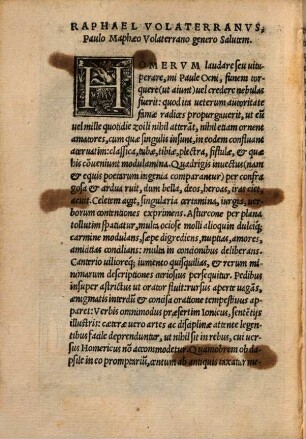 RAPHAEL VOLATERRANVS,
Paulo Maphæo Volaterrano genero Salutem.
HOMERVM laudare seu uitu-
perare, mi Paule Ocni, funem tor-
quere (ut aiunt) uel credere nebulas
fuerit: quod ita ueterum autoritate
fama radices propurgauerit, ut eū
uel mille quotidie zoili nihil atterāt, nihil etiam ornent
amatores, cum quæ singulis insunt, in eodem constituant
aceruatim: classica, tubæ, tibiæ, plectra, fistulæ, & quæ
bis cōueniunt modulamina. Quadrigis inuectus (nam
& equis poetarum ingenia comparantur) per confra
gosa & ardua ruit, dum bella, deos, heroas, iras ciet,
acuit. Celetem agit, singularia certamina, iurgia, uer-
borum contentiones exprimens. Asturcone per plana
tollutim spatiatur, mula ociose molli alioquin dulciq;
carmine modulans, sæpe digrediens, nuptias, amores,
amicitias conalians: multa in conationibus deliberans.
Canterio uilioreq; iumento quisquilias, & rerum mi
nimarum descriptiones curiosius persequitur. Pedibus
insuper astrictus ut orator fluit: rursus aperte uagās,
ænigmatis interdū & concisa oratione tempestiuus ap
paret: Verbis omnimodus præsertim Ionicus, sentētijs
illustris: cæteræ uero artes ac disciplinæ attente legen-
tibus facile deprenduntur, ut nihil sit in rebus, cui uer-
sus Homericus nō accommodetur. Quamobrem ob da-
psile in eo promptuariū, œneum ab antiquis taxatur me-